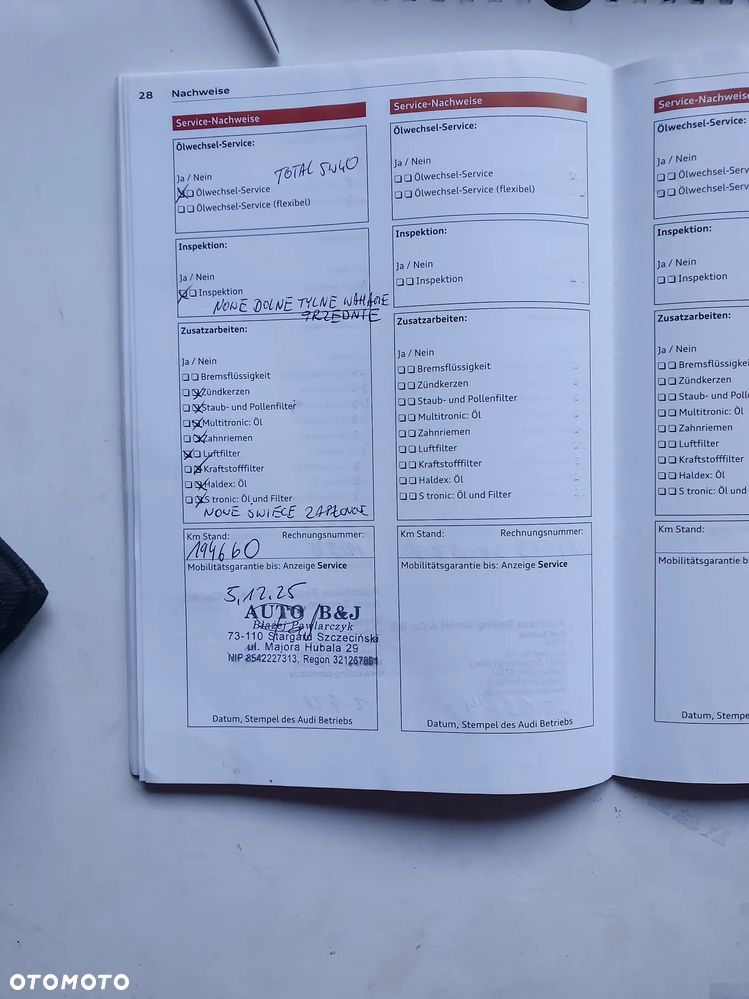 28 Nachweise
Service-Nachweise
Ölwechsel-Service:
TOTAL 5W40
Ja / Nein
Ölwechsel-Service
Ölwechsel-Service (flexibel)
Inspektion:
Ja / Nein
Inspektion
NOWE DOLNE TYLNE WAHACZE
PRZEDNIE
Zusatzarbeiten:
Ja / Nein
Bremsflüssigkeit
Zündkerzen
Staub- und Pollenfilter
Multitronic: Öl
Zahnriemen
Luftfilter
Kraftstofffilter
Haldex: Öl
S tronic: Öl und Filter
NOWE ŚWIECE ZAPŁONOWE
Km Stand: Rechnungsnummer:
194660
Mobilitätsgarantie bis: Anzeige Service
5.12.25
AUTO B&J
Błażej Pawlarczyk
73-110 Stargard Szczeciński
ul. Majora Hubala 29
NIP 8542227313, Regon 321267861
Datum, Stempel des Audi Betriebs
Service-Nachweise
Ölwechsel-Service:
Ja / Nein
Ölwechsel-Service
Ölwechsel-Service (flexibel)
Inspektion:
Ja / Nein
Inspektion
Zusatzarbeiten:
Ja / Nein
Bremsflüssigkeit
Zündkerzen
Staub- und Pollenfilter
Multitronic: Öl
Zahnriemen
Luftfilter
Kraftstofffilter
Haldex: Öl
S tronic: Öl und Filter
Km Stand: Rechnungsnummer:
Mobilitätsgarantie bis: Anzeige Service
Datum, Stempel des Audi Betriebs
Service-Nachweise
Ölwechsel-Service:
Ja / Nein
Ölwechsel-Serv
Ölwechsel-Serv
Inspektion:
Ja / Nein
Inspektion
Zusatzarbeiten:
Ja / Nein
Bremsflüssigkei
Zündkerzen
Staub- und Poll
Multitronic: Öl
Zahnriemen
Luftfilter
Kraftstofffilter
Haldex: Öl
S tronic: Öl und
Km Stand:
Mobilitätsgarantie bis
Datum, Stemp
OTOMOTO